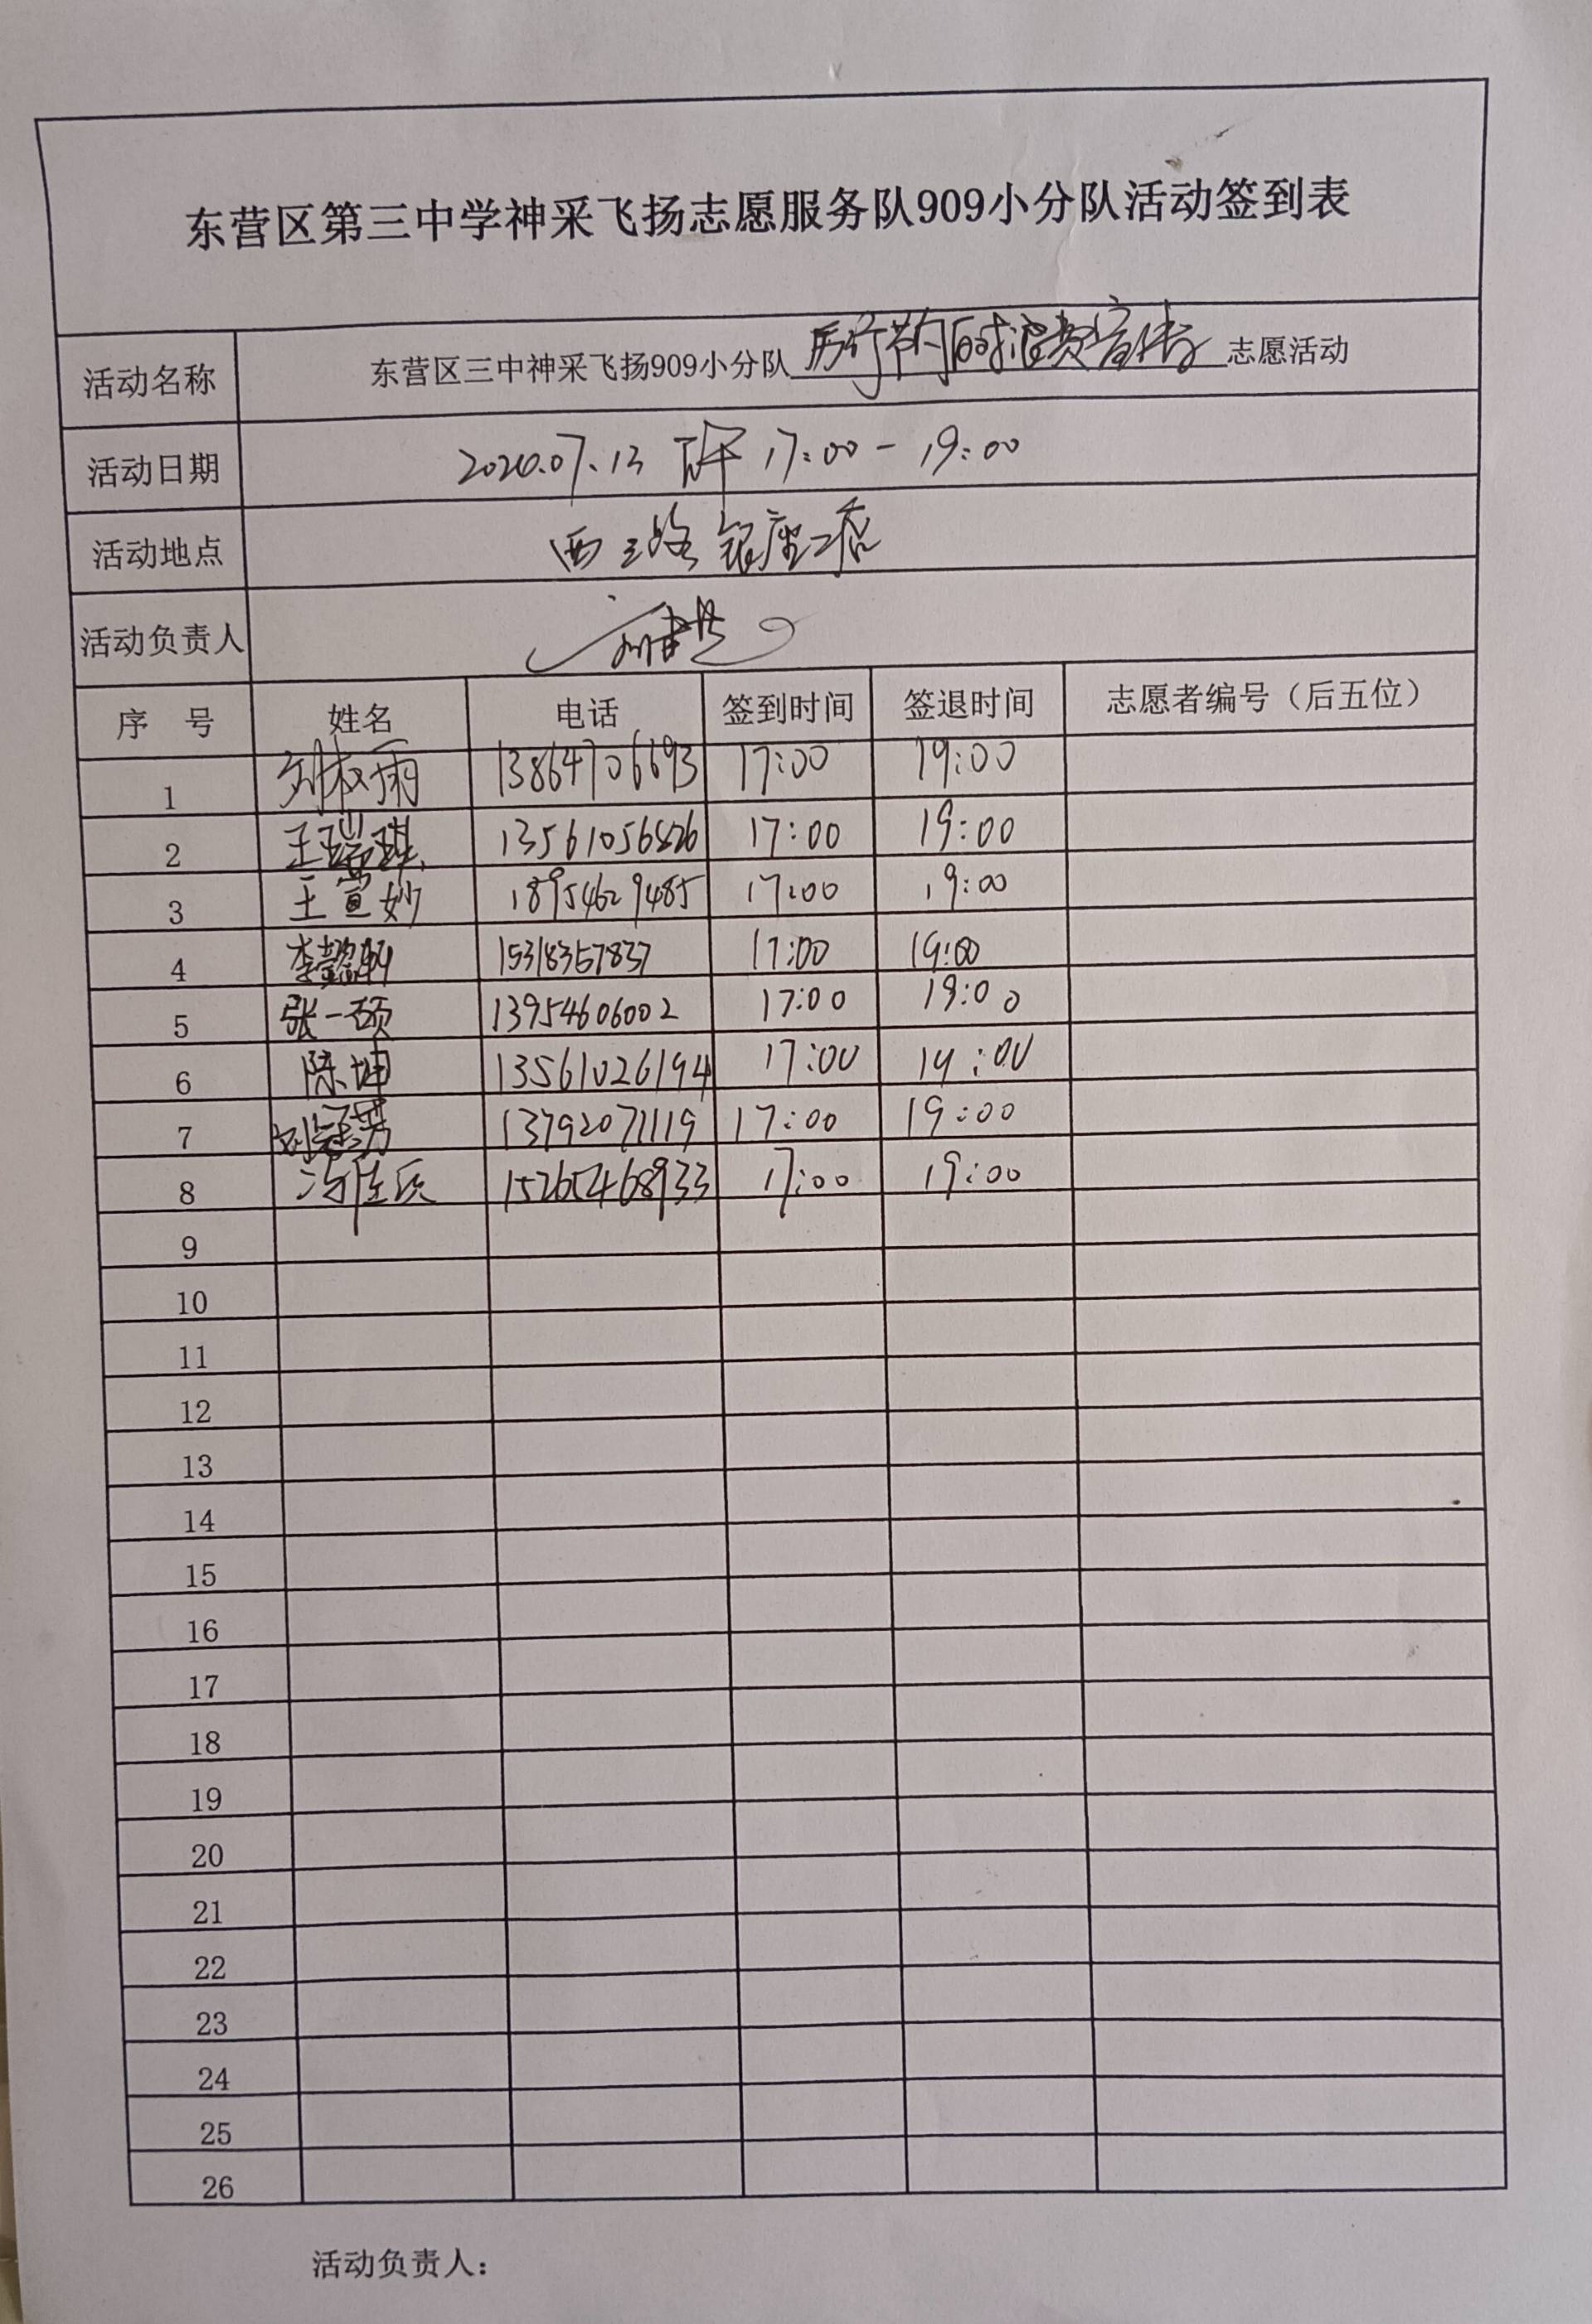 东营区第三中学神采飞扬志愿服务队909小分队活动签到表
活动名称 东营区三中神采飞扬909小分队 厉行节约 浪费宣传 志愿活动
活动日期 2020.07.13 下午 17:00-19:00
活动地点 西三路银座二店
活动负责人
序 号 姓名 电话 签到时间 签退时间 志愿者编号（后五位）
1 刘权雨 13864706693 17:00 19:00
2 王瑞琪 13561056826 17:00 19:00
3 王萱妙 18954629485 17:00 19:00
4 李懿轩 15318357837 17:00 19:00
5 张一硕 13954606002 17:00 19:00
6 陈坤 13561026194 17:00 19:00
7 刘 13792071119 17:00 19:00
8 冯 15265468933 17:00 19:00
9
10
11
12
13
14
15
16
17
18
19
20
21
22
23
24
25
26
活动负责人：